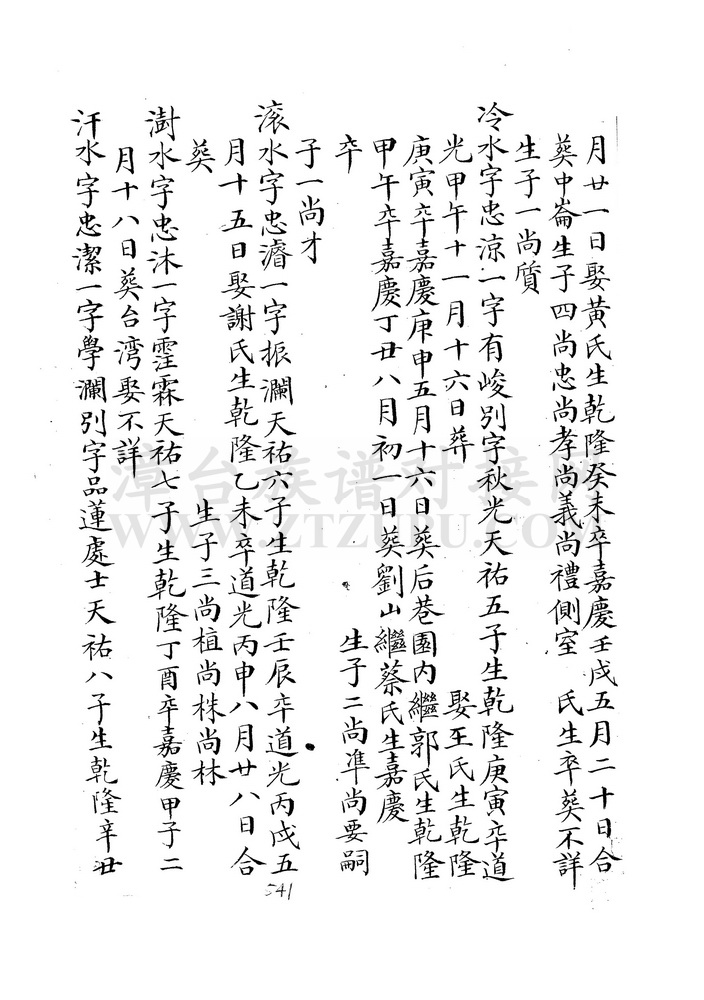 月廿一日娶黃氏生乾隆癸未卒嘉慶壬戌五月二十日合
葵中崙生子四尚忠尚孝尚義尚禮側室 氏生卒葵不詳
生子一尚質
冷水字忠涼一字有峻別字秋光天祐五子生乾隆庚寅卒道
光甲午十一月十六日葬 娶王氏生乾隆
庚寅卒嘉慶庚申五月十六日葵后巷園内繼郭氏生乾隆
甲午卒嘉慶丁丑八月初一日葵劉山繼蔡氏生嘉慶
卒 生子二尚準尚要嗣
子一尚才
滚水字忠濬一字振瀾天祐六子生乾隆壬辰卒道光丙戌五
月十五日娶謝氏生乾隆乙未卒道光丙申八月廿八日合
葵 生子三尚植尚株尚林
澍水字忠沐一字霔霖天祐七子生乾隆丁酉卒嘉慶甲子二
月十八日葵台湾娶不詳
汗水字忠潔一字學瀾別字品蓮處士天祐八子生乾隆辛丑
541
漳台族谱对接网
WWW.ZTZUPU.COM